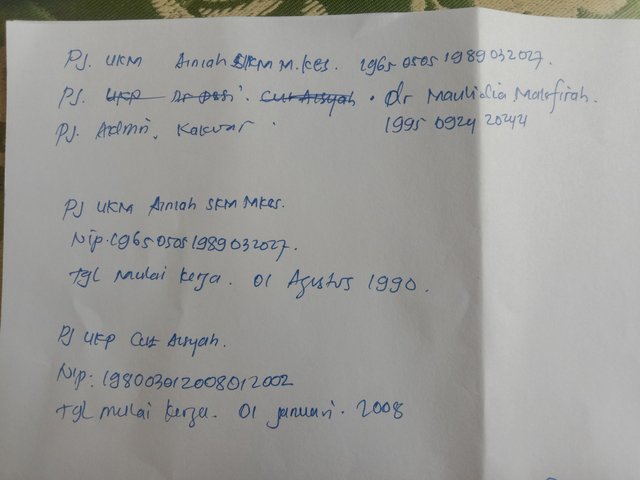 PJ. UKM Ainiah SKM M.Kes. 196505051989032027.
PJ. UKP Cut Aisyah. dr Maulidia Malsfirah.
PJ. Admin, Kakvar.
1995 0924 20244
PJ UKM Ainiah SKM MKes.
Nip. 196505051989032027.
Tgl Mulai Kerja. 01 Agustus 1990.
PJ UKP Cut Aisyah.
Nip: 198003012008012002
Tgl mulai Kerja. 01 januari. 2008